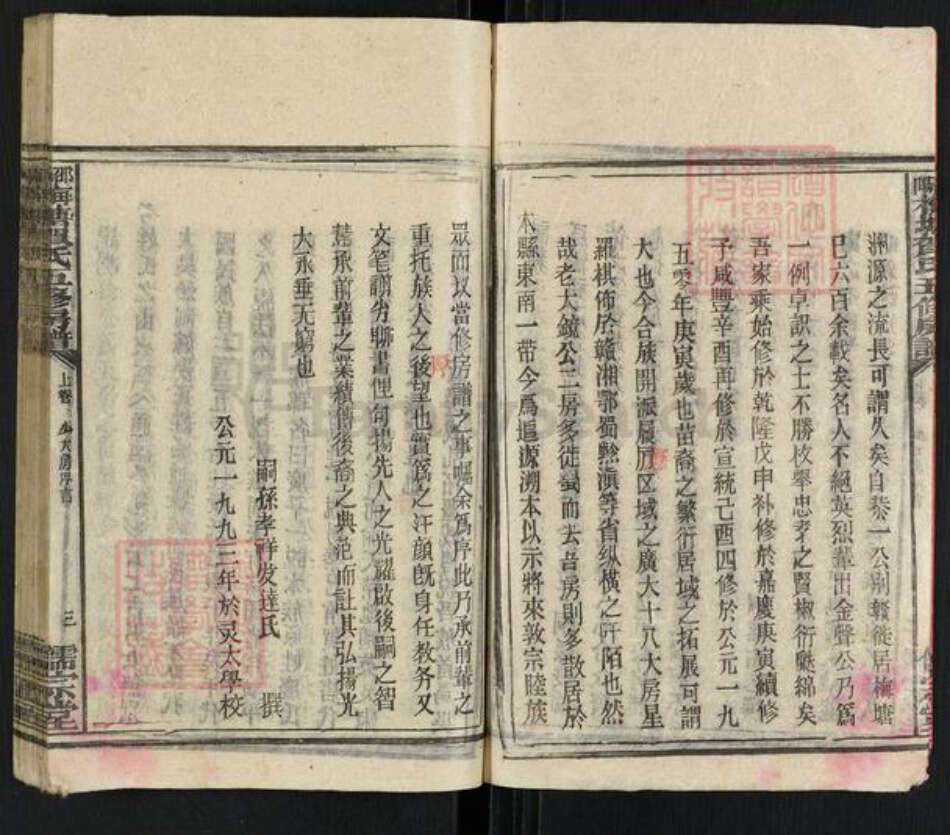 淵源之流長可謂久矣自恭一公別贛徙居梅塘
已六百余載矣名人不絕英烈輩出金聲公乃爲
一例卓識之士不勝枚舉忠孝之賢椒衍瓞綿矣
吾家乘始修於乾隆戊申补修於嘉慶庚寅續修
子咸豐辛酉再修於宣統己酉四修於公元一九
五零年庚寅歲也苗裔之繁衍居域之拓展可謂
大也今合族開派展厝区域之廣大十八大房星
羅棋佈於贛湘鄂蜀黔滇等省纵横之阡陌也然
哉老大鏡公二房多徙蜀而去吾房則多散居於
木縣東南一带今爲追源溯本以示將來敦宗睦族
眾而以當修房譜之事嘱余爲序此乃承前輩之
重托族人之後望也實爲之汗顏既身任教务又
文笔謭劣聊書俚句揚先人之光耀啟後嗣之智
慧承前輩之業績傳後裔之典范而让其弘揚光
大永垂无窮也
嗣孫孝祥发達氏 撰
公元一九九二年於灵太學校
上卷
三
儒宗堂